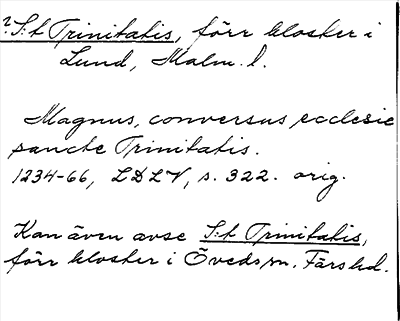 ?S:t Trinitatis, förr kloster i
Lund, Malm. l.
Magnus, conversus ecclesie
sancte Trinitatis.
1234-66, LDLV, s. 322. orig.
Kan även avse S:t Trinitatis,
förr kloster i Öveds sn. Färs hd.